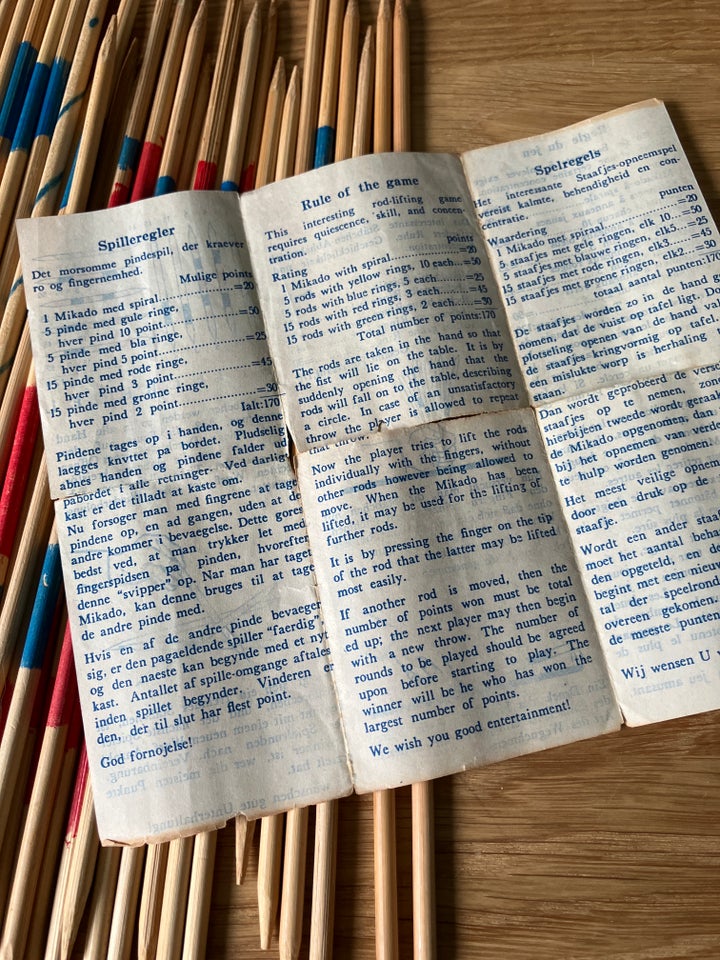 Spilleregler
Det morsomme pindespil, der kraever
ro og fingernemhed.
Mulige points
1 Mikado med spiral.....................=20
5 pinde med gule ringe,
hver pind 10 point......................=50
5 pinde med bla ringe,
hver pind 5 point.......................=25
15 pinde med rode ringe,
hver pind 3 point.......................=45
15 pinde med gronne ringe,
hver pind 2 point.......................=30
Ialt:170
Pindene tages op i handen, og denne
laegges knvttet pa bordet. Pludselig
abnes handen og pindene falder ud
pabordet i alle retninger. Ved darligt
kast er det tilladt at kaste om.
Nu forsøger man med fingrene at tage
pindene op, en ad gangen, uden at de
andre kommer i bevaegelse. Dette gores
bedst ved, at man trykker let med
fingerspidsen pa pinden, hvorefter
denne "svipper" op. Nar man har taget
Mikado, kan denne bruges til at tage
de andre pinde med.
Hvis en af de andre pinde bevaeger
sig, er den pagaeldende spiller "faerdig"
og den naeste kan begynde med et nyt
kast. Antallet af spille-omgange aftales
inden spillet begynder. Vinderen er
den, der til slut har flest point.
God fornojelse!
Rule of the game
This interesting rod-lifting game
requires quiescence, skill, and concen-
tration.
Rating points
1 Mikado with spiral....................=20
5 rods with yellow rings, 10 each....=50
5 rods with blue rings, 5 each......=25
15 rods with red rings, 3 each.......=45
15 rods with green rings, 2 each.....=30
Total number of points:170
The rods are taken in the hand so that
the fist will lie on the table. It is by
suddenly opening the hand that the
rods will fall on to the table, describing
a circle. In case of unsatisfactory
throw the player is allowed to repeat
that throw.
Now the player tries to lift the rods
individually with the fingers, without
other rods however being allowed to
move. When the Mikado has been
lifted, it may be used for the lifting of
further rods.
It is by pressing the finger on the tip
of the rod that the latter may be lifted
most easily.
If another rod is moved, then the
number of points won must be total
ed up; the next player may then begin
with a new throw. The number of
rounds to be played should be agreed
upon before starting to play. The
winner will be he who has won the
largest number of points.
We wish you good entertainment!
Spelregels
Het interessante Staafjes-opneemspel
vereist kalmte, behendigheid en con-
centratie.
Waardering punten
1 Mikado met spiraal....................=20
5 staafjes met gele ringen, elk 10....=50
5 staafjes met blauwe ringen, elk5....=25
15 staafjes met rode ringen, elk3.....=45
15 staafjes met groene ringen, elk2...=30
totaal aantal punten:170
De staafjes worden zo in de hand
nomen, dat de vuist op tafel ligt. Do
plotseling openen van de hand v
de staafjes kringvormig op tafel.
een mislukte worp is herhaling
staan.
Dan wordt geprobeerd de versc
staafjes op te nemen, zon
hierbijeen tweede wordt geraak
de Mikado opgenomen, dan
bij het opnemen van verde
te hulp worden genomen.
Het meest veilige opnem
door een druk op de
staafje.
Wordt een ander staaf
moet het aantal behaa
den opgeteld, en d
begint met een nieuw
tal der speelrond
overeen gekomen
de meeste punten
Wij wensen U v